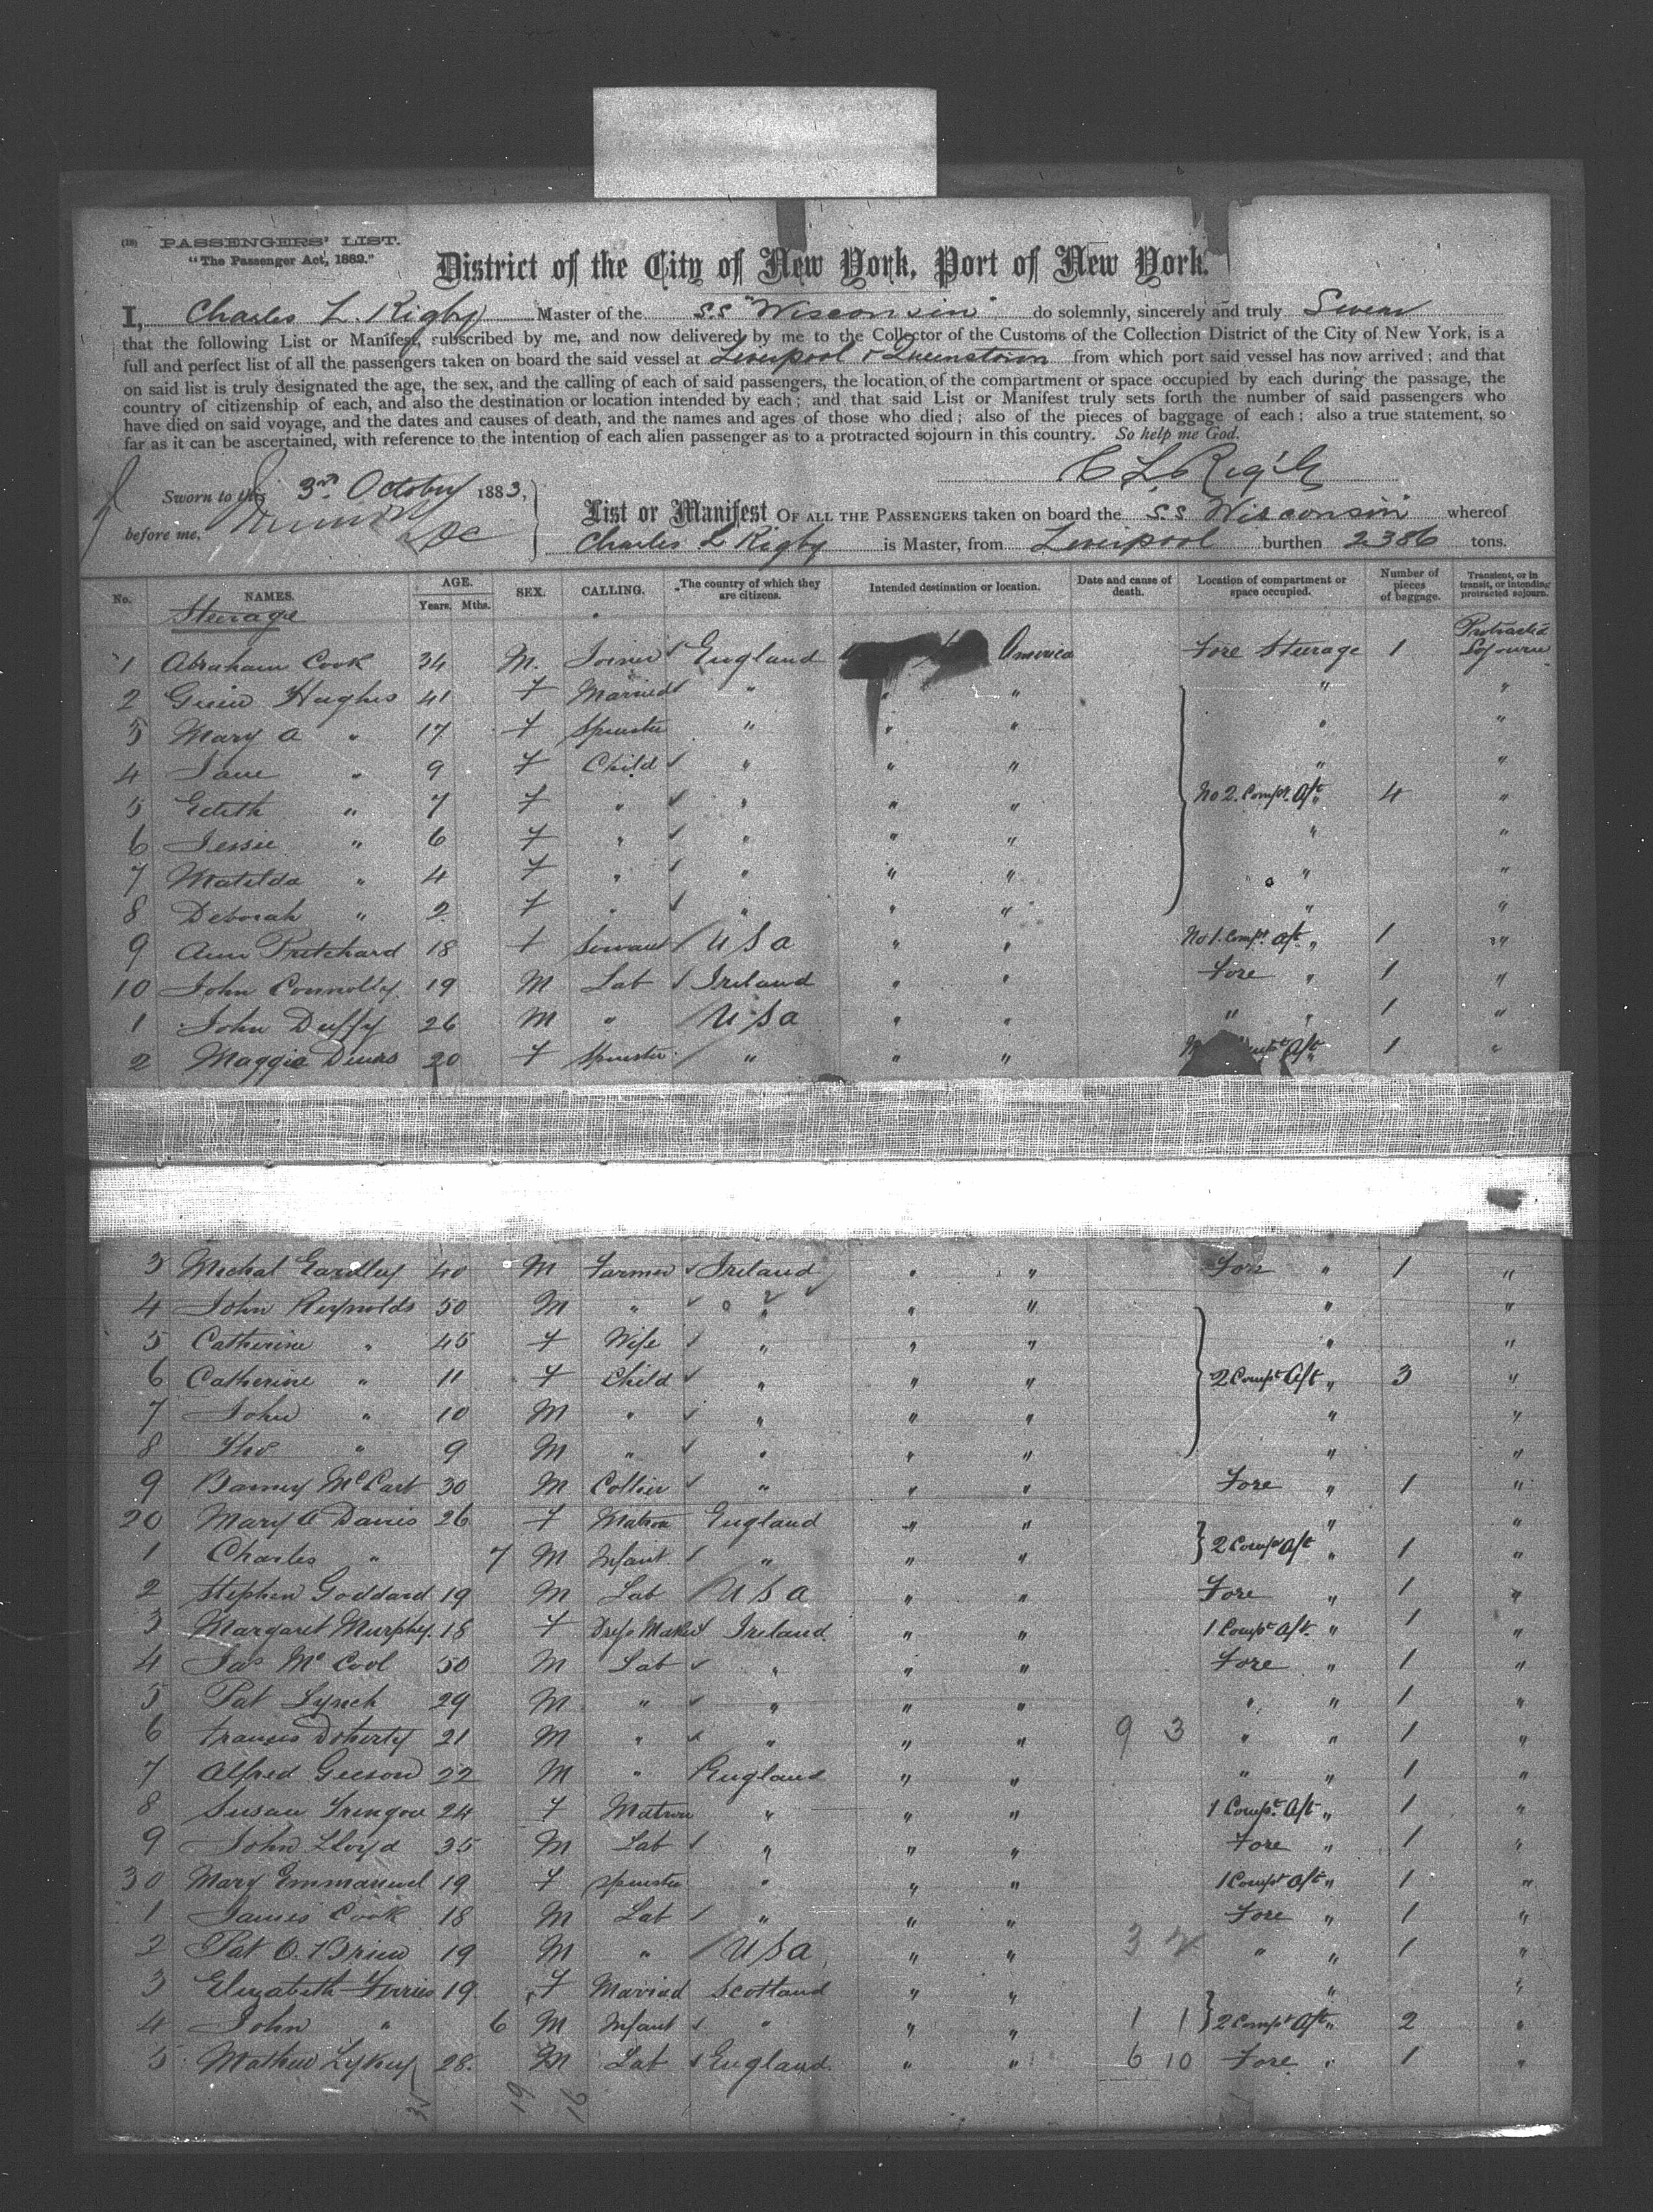 (18) PASSENGERS' LIST.
"The Passenger Act, 1882."
District of the City of New York, Port of New York.
I, Charles L. Rigby Master of the S.S "Wisconsin" do solemnly, sincerely and truly Swear
that the following List or Manifest, subscribed by me, and now delivered by me to the Collector of the Customs of the Collection District of the City of New York, is a
full and perfect list of all the passengers taken on board the said vessel at Liverpool & Queenstown from which port said vessel has now arrived; and that
on said list is truly designated the age, the sex, and the calling of each of said passengers, the location of the compartment or space occupied by each during the passage, the
country of citizenship of each, and also the destination or location intended by each; and that said List or Manifest truly sets forth the number of said passengers who
have died on said voyage, and the dates and causes of death, and the names and ages of those who died; also of the pieces of baggage of each; also a true statement, so
far as it can be ascertained, with reference to the intention of each alien passenger as to a protracted sojourn in this country. So help me God.
C L Rigby
Sworn to this 3rd October 1883,
before me,
List or Manifest OF ALL THE PASSENGERS taken on board the S.S. Wisconsin" whereof
Charles L Rigby is Master, from Liverpool burthen 2386 tons.
No. NAMES. AGE. Years. Mths. SEX. CALLING. The country of which they are citizens. Intended destination or location. Date and cause of death. Location of compartment or space occupied. Number of pieces of baggage. Transient, or in transit, or intending protracted sojourn.
Steerage
1 Abraham Cook 34 M. Joiner England America Fore Steerage 1 Protracted Sojourn
2 Hughes 41 F Married " " " " "
3 Mary A " 17 F Spinster " " " " "
4 Jane " 9 F Child " " " " "
5 Edith " 7 F " " " " No 2. Compt. Aft " 4 "
6 Jessie " 6 F " " " " " "
7 Matilda " 4 F " " " " " "
8 Deborah " 2 F " " " " " "
9 Ann Pritchard 18 F Servant U S A " " No 1. Compt. Aft " 1 "
10 John Connolly 19 M Lab Ireland " " Fore " 1 "
1 John Duffy 26 M " U S A " " " " 1 "
2 Maggie 20 F Spinster " " " Aft " 1 "
3 Michal Eardley 40 M Farmer Ireland " " Fore " 1 "
4 John Reynolds 50 M " " " " " "
5 Catherine " 45 F Wife " " " " "
6 Catherine " 11 F Child " " " 2 Compt Aft " 3 "
7 John " 10 M " " " " " "
8 Tho " 9 M " " " " " "
9 Barney McCart 30 M Collier " " " Fore " 1 "
20 Mary A Davis 26 F Matron England " " " "
1 Charles " 7 M Infant " " " 2 Compt Aft " 1 "
2 Stephen Goddard 19 M Lab U S A " " Fore " 1 "
3 Margaret Murphy 18 F Dress Maker Ireland " " 1 Compt Aft " 1 "
4 Jas McCool 50 M Lab " " " Fore " 1 "
5 Pat Lynch 29 M " " " " " " 1 "
6 Francis Doherty 21 M " " " " 9 3 " " 1 "
7 Alfred Geeson 22 M " England " " " " 1 "
8 Susan 24 F Matron " " " 1 Compt Aft " 1 "
9 John Lloyd 35 M Lab " " " Fore " 1 "
30 Mary Emmanuel 19 F Spinster " " " 1 Compt Aft " 1 "
1 James Cook 18 M Lab " " " Fore " 1 "
2 Pat O.Brien 19 M " U S A " " 3 2 " " 1 "
3 Elizabeth 19 F Married Scotland " " " "
4 John " 6 M Infant " " " 1 1 2 Compt Aft " 2 "
5 Mathew 28 M Lab England " " 6 10 Fore " 1 "
35 19 16